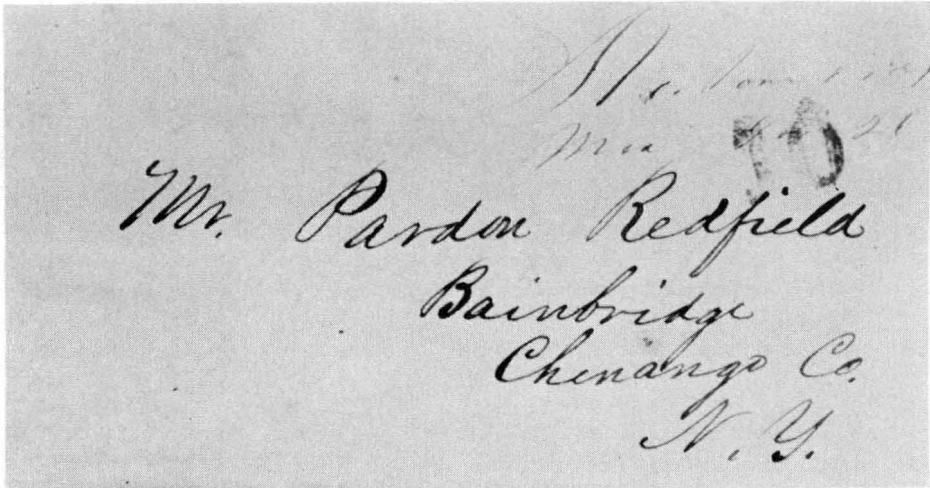 10
Mr. Pardon Redfield
Bainbridge
Chenango Co.
N. Y.